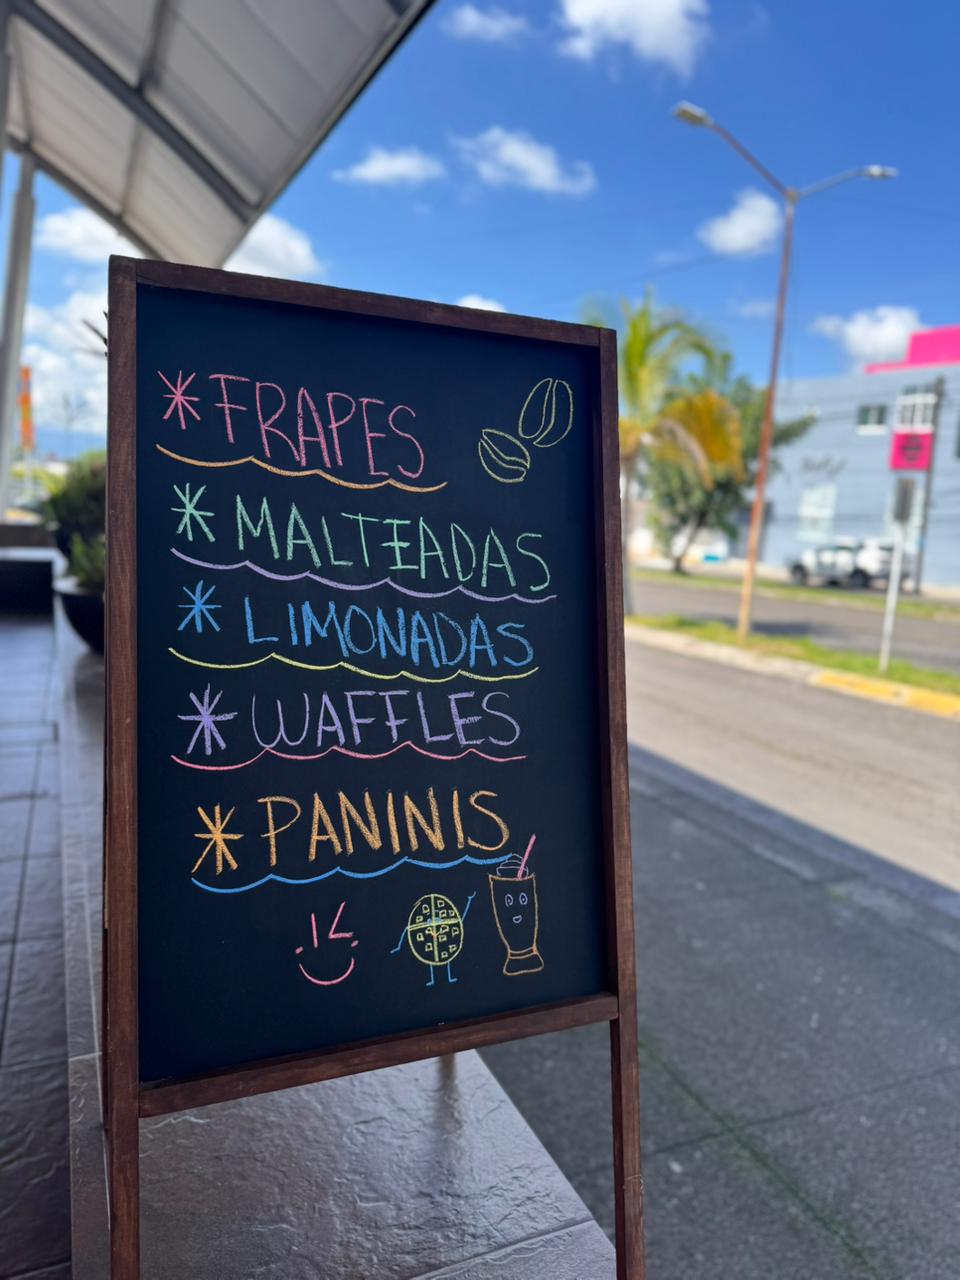 * FRAPES
* MALTEADAS
* LIMONADAS
* WAFFLES
* PANINIS